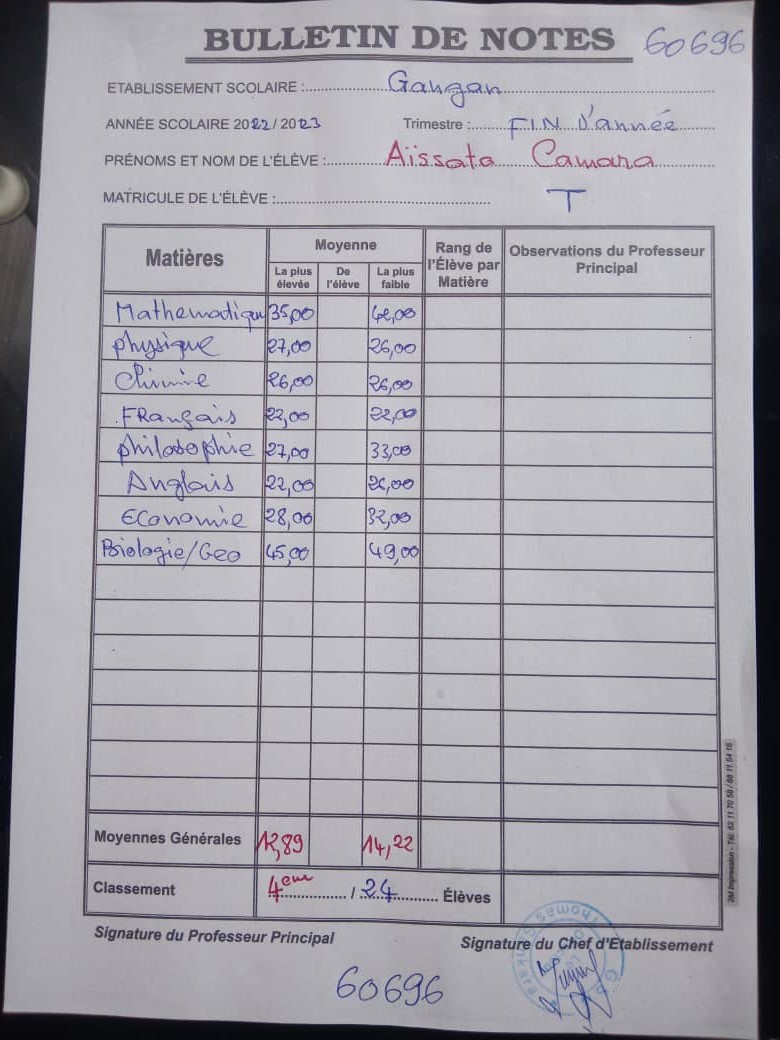 BULLETIN DE NOTES 60696
ETABLISSEMENT SCOLAIRE :.......... Gangan
ANNÉE SCOLAIRE 2022/2023 Trimestre :.... FIN D'année
PRÉNOMS ET NOM DE L'ÉLÈVE :.......... Aïssata Camara
MATRICULE DE L'ÉLÈVE :.......... T
Matières Moyenne Rang de l'Élève par Matière Observations du Professeur Principal
La plus élevée De l'élève La plus faible
Mathematique 35,00
physique 27,00 26,00
Chimie 26,00 26,00
FRançais 22,00
philosophie 27,00 33,00
Anglais 22,00
Economie 28,00 32,00
Biologie/Geo 45,00 49,00
Moyennes Générales 12,89 14,22
Classement 4eme / 24 Élèves
Signature du Professeur Principal Signature du Chef d'Etablissement
60696
2M Impression - Tél: 62 11 70 58 / 68 11 54 16